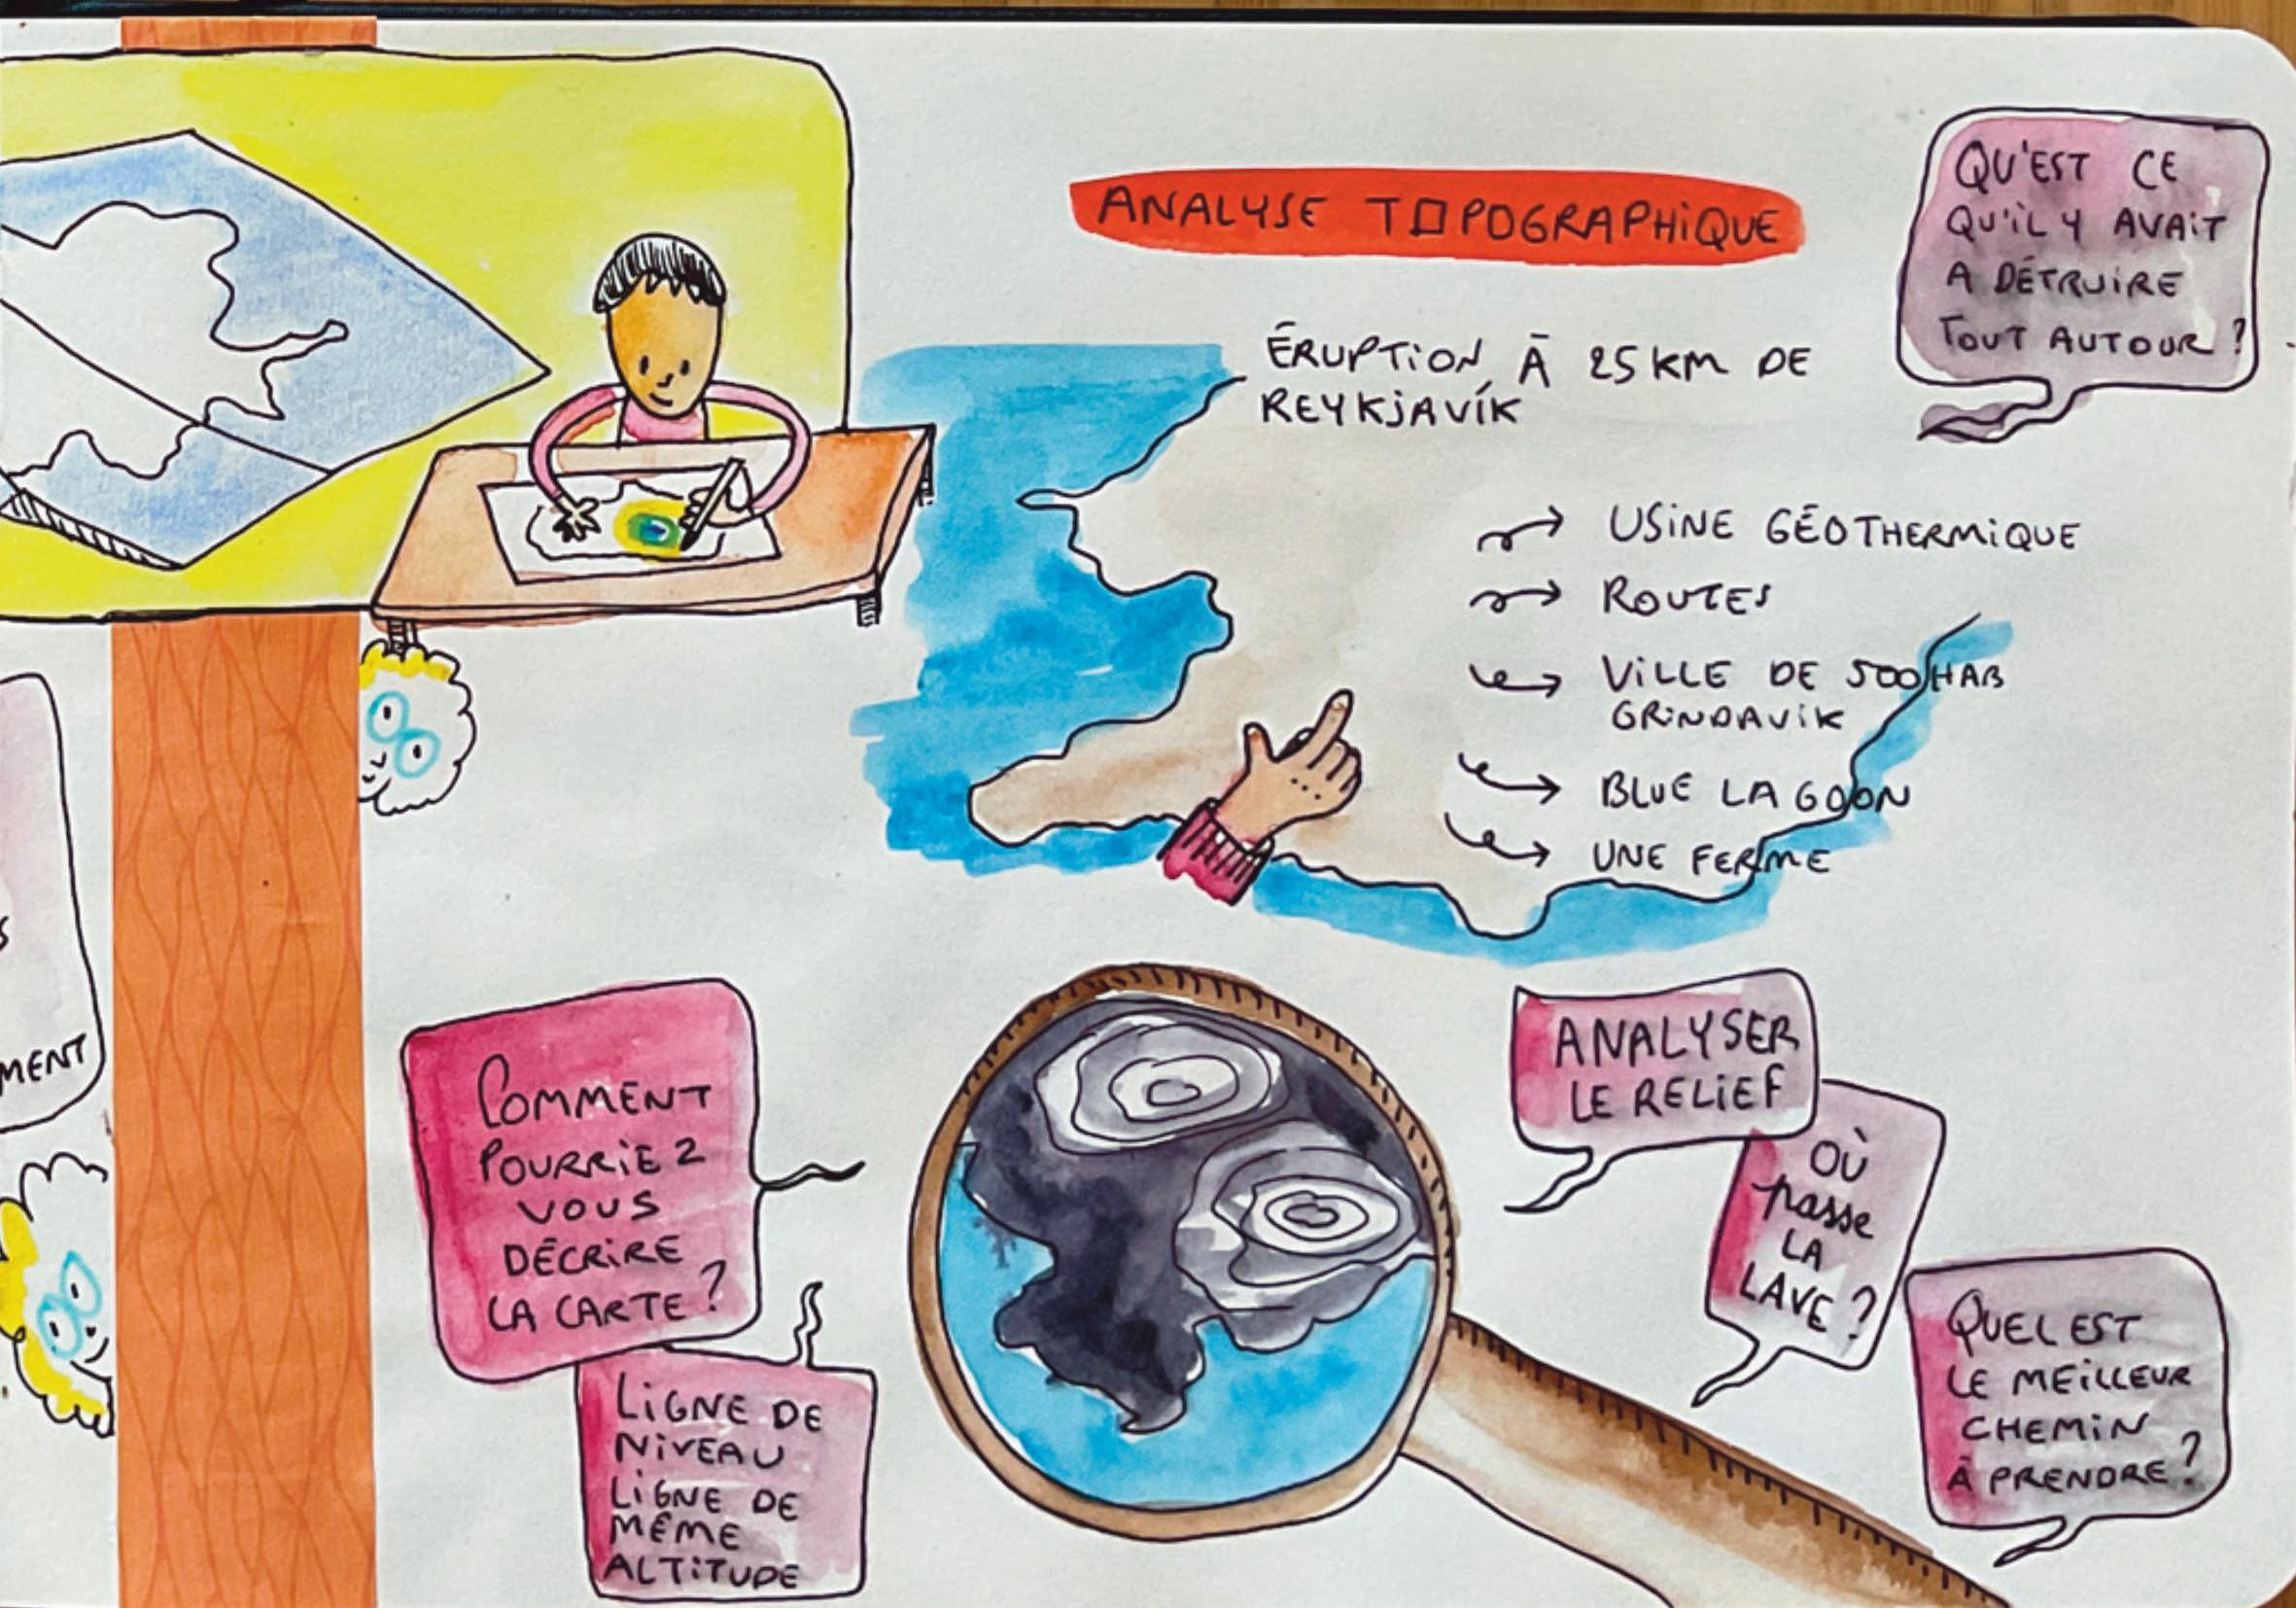 ANALYSE TOPOGRAPHiQUE
QU'EST CE
QU'iL Y AVAiT
A DÉTRUiRE
TOUT AUTOUR ?
ÉRUPTiON À 25 KM DE
REYKJAVÍK
USiNE GÉOTHERMiQUE
ROUTES
ViLLE DE 500 HAB
GRiNDAViK
BLUE LAGOON
UNE FERME
MENT
COMMENT
POURRiEZ
VOUS
DÉCRiRE
LA CARTE ?
LiGNE DE
NiVEAU
LiGNE DE
MÊME
ALTiTUDE
ANALYSER
LE RELiEF
OÙ
passe
LA
LAVE ?
QUEL EST
LE MEiLLEUR
CHEMiN
À PRENDRE ?